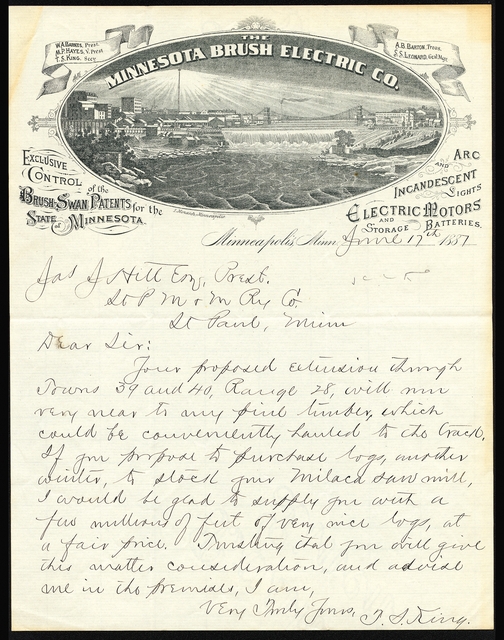 W.A. BARNES, Prest.
M.P. HAYES, V. Prest
T.S. KING, Secy
A.B. BARTON, Treas.
S.S. LEONARD, Genl Mgr.
THE
MINNESOTA BRUSH ELECTRIC CO.
EXCLUSIVE
CONTROL
of the
BRUSH-SWAN PATENTS for the
STATE of MINNESOTA.
ARC
AND
INCANDESCENT
LIGHTS
ELECTRIC MOTORS
AND
STORAGE BATTERIES.
Minneapolis, Minn. June 17th 1887
Jas J Hill Esq, Prest.
St P M & M Ry Co.
St Paul, Minn
Dear Sir:
Your proposed extension through
Towns 39 and 40, Range 28, will run
very near to my pine timber, which
could be conveniently hauled to the track.
If you propose to purchase logs, another
winter, to stock your Milaca saw mill,
I would be glad to supply you with a
few millions of feet of very nice logs, at
a fair price. Trusting that you will give
this matter consideration, and advise
me in the premises, I am,
Very Truly Yours, T. S. King.